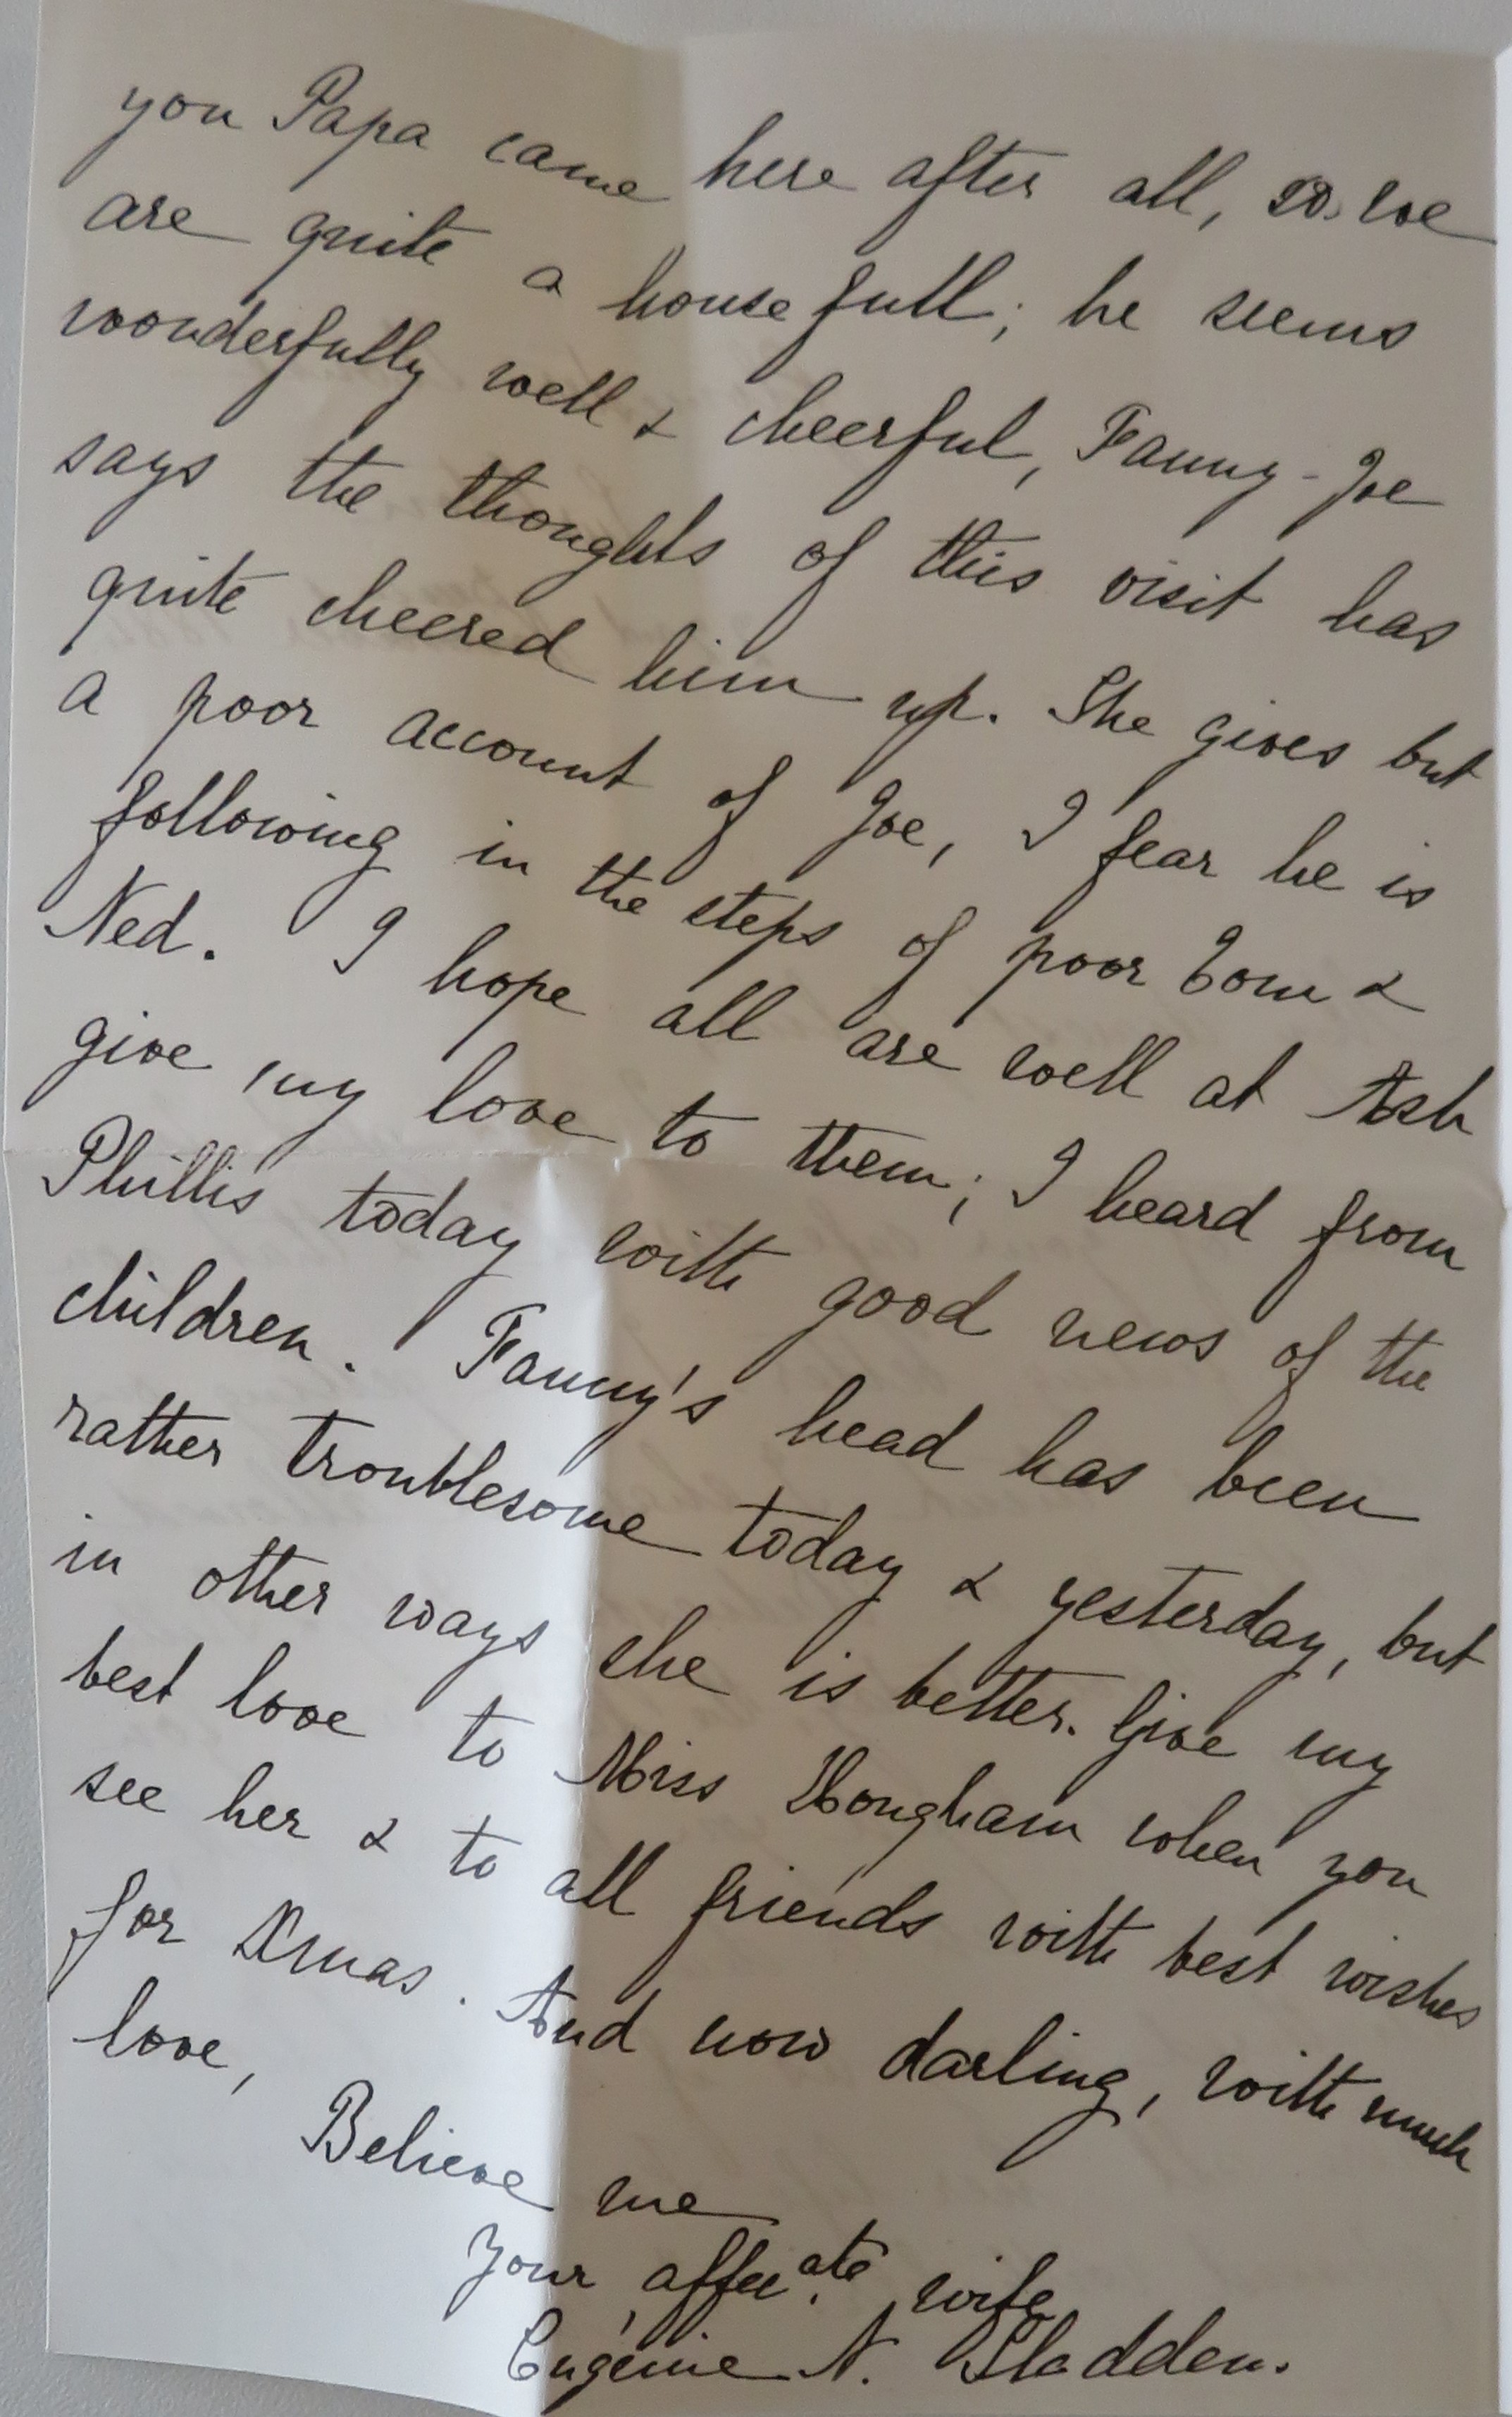 you Papa came here after all, so we
are quite a house full; he seems
wonderfully well & cheerful, Fanny-Joe
says the thoughts of this visit has
quite cheered him up. She gives but
a poor account of Joe, I fear he is
following in the steps of poor Tom &
Ned. I hope all are well at Ash
give my love to them; I heard from
Phillis today with good news of the
children. Fanny's head has been
rather troublesome today & yesterday, but
in other ways she is better. Give my
best love to Miss Hougham when you
see her & to all friends with best wishes
for Xmas. And now darling, with much
love,
Believe me
Your affecate wife
Eugénie N. Sladden.